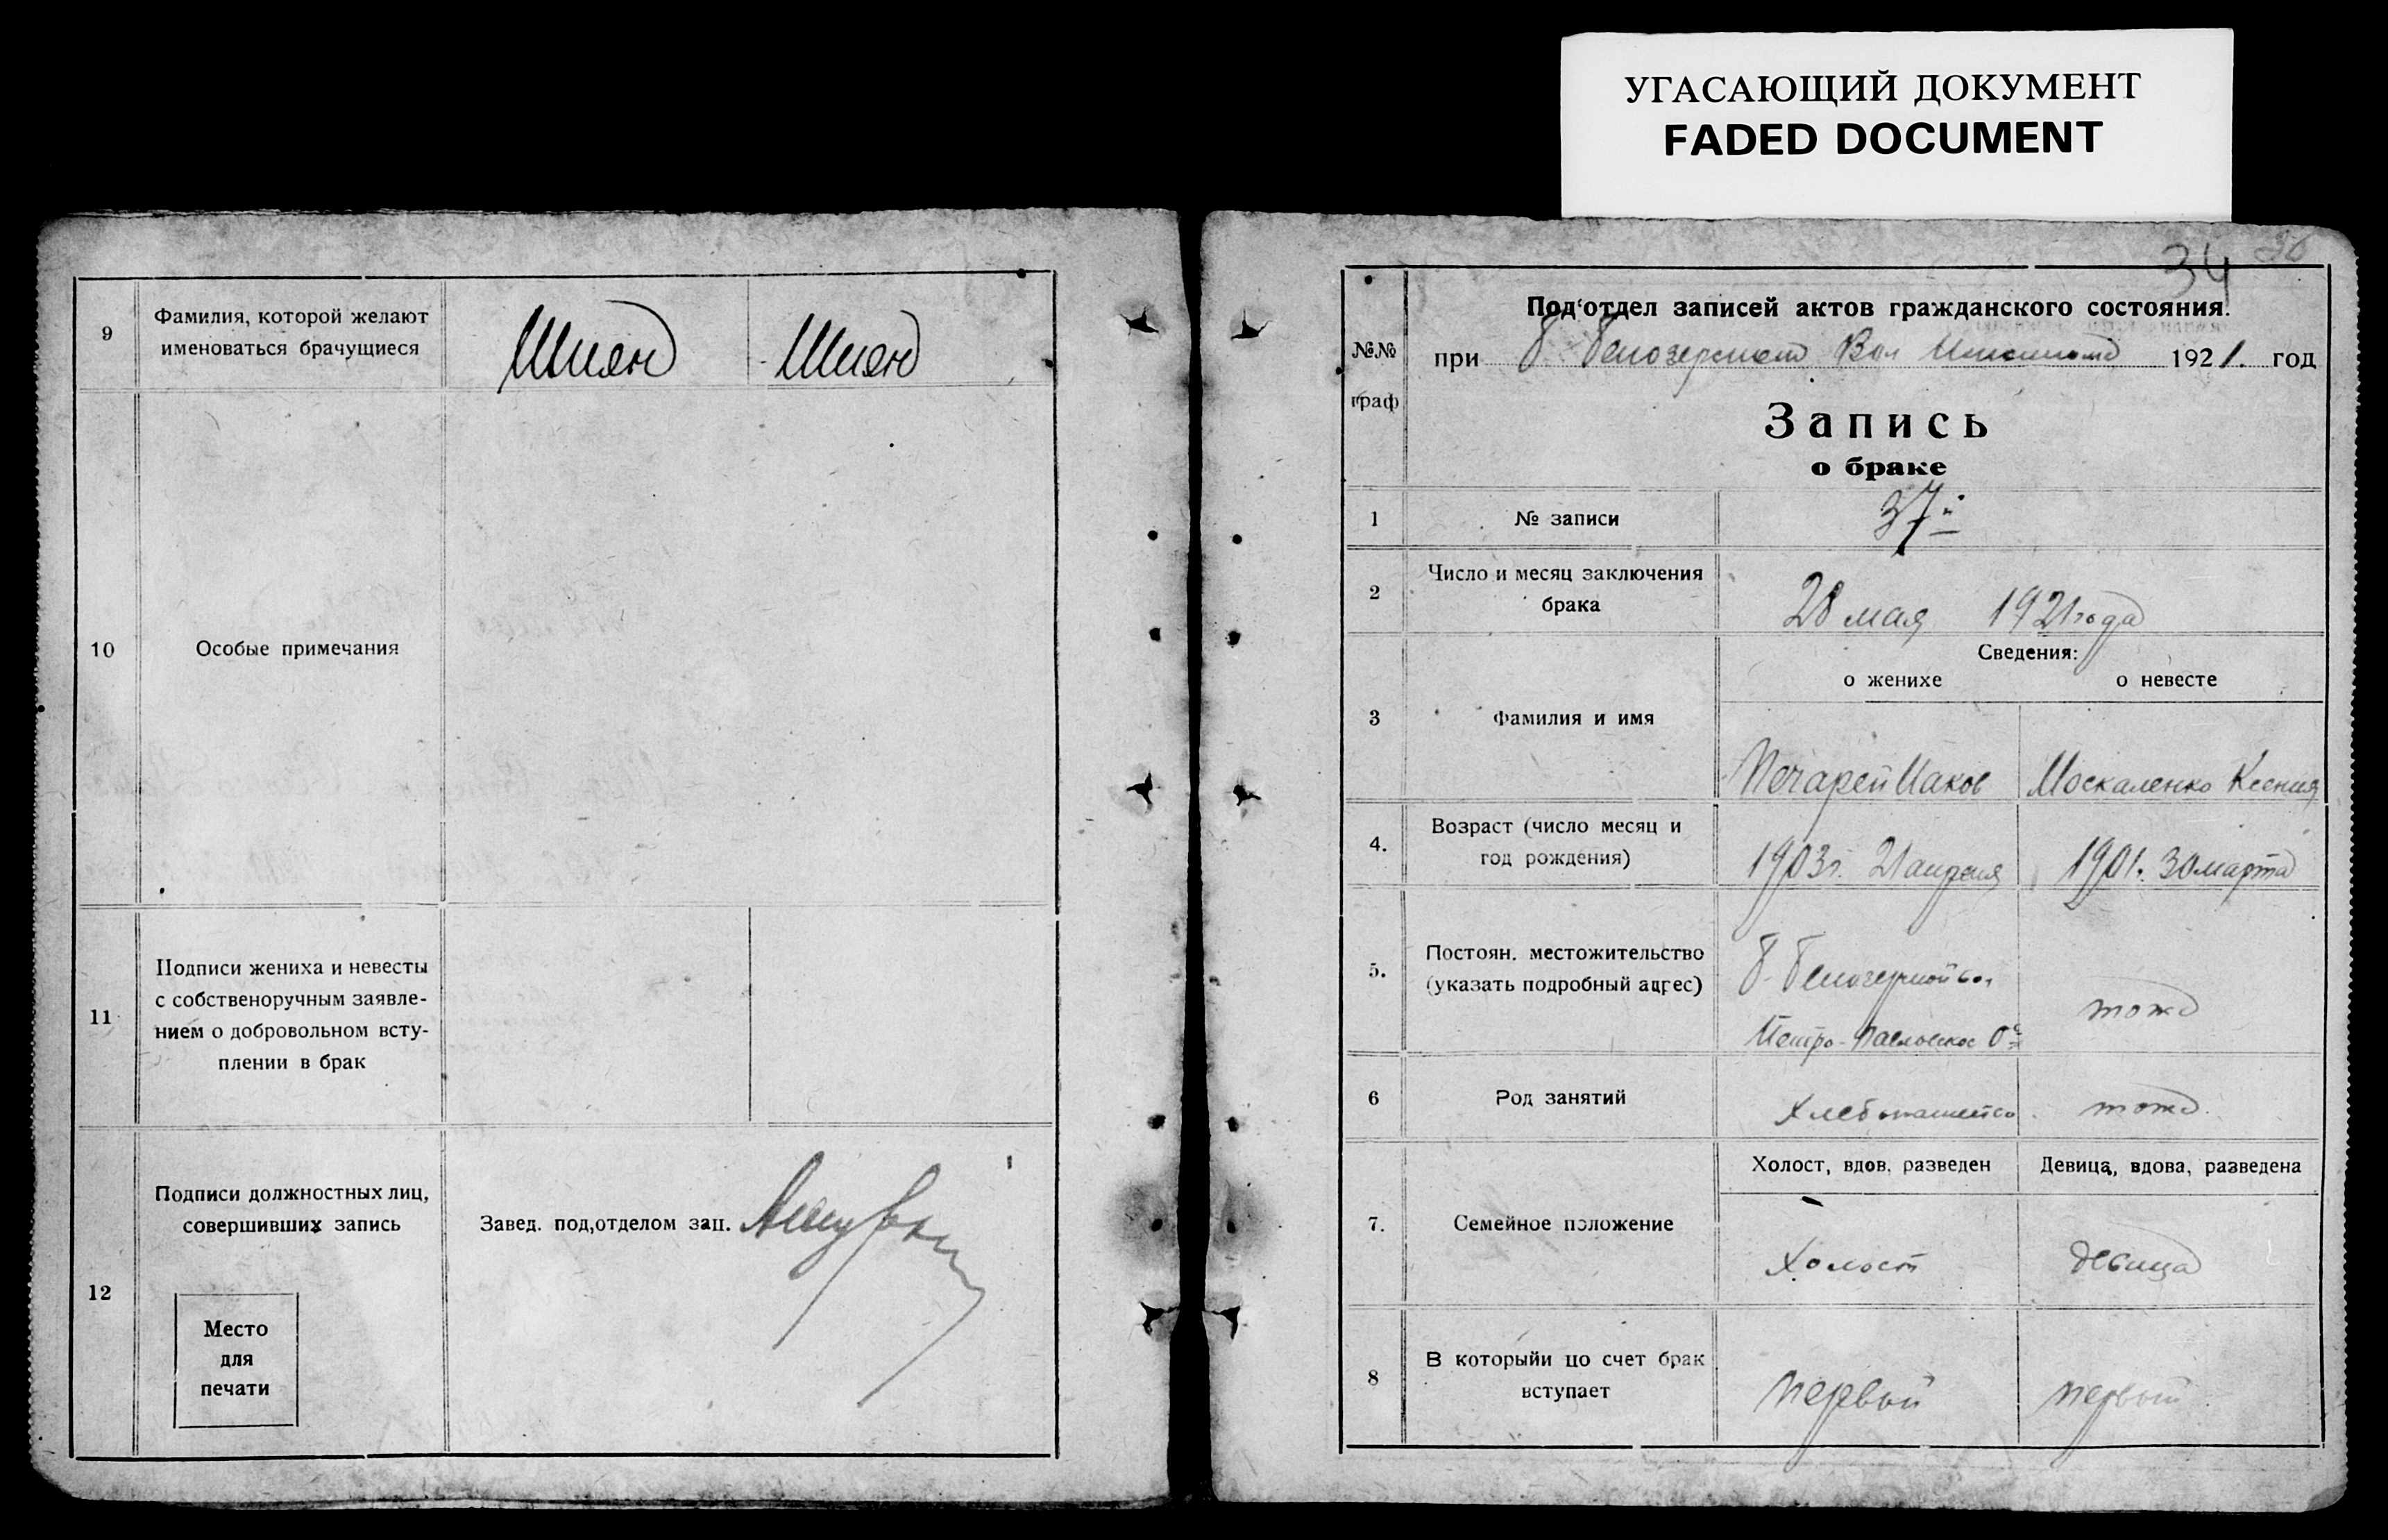 УГАСАЮЩИЙ ДОКУМЕНТ
FADED DOCUMENT
9
Фамилия, которой желают
именоваться брачущиеся
Шиян
Шиян
10
Особые примечания
11
Подписи жениха и невесты
с собственоручным заявле-
нием о добровольном всту-
плении в брак
12
Подписи должностных лиц,
совершивших запись
Завед. под,отделом зап.
Место
для
печати
34
36
№№
граф
Под'отдел записей актов гражданского состояния.
при Б. Белозерском Вол 1921. год
Запись
о браке
1
№ записи
37
2
Число и месяц заключения
брака
28 мая 1921 года
Сведения:
о женихе
о невесте
3
Фамилия и имя
Печарей Иаков
Москаленко Ксения
4.
Возраст (число месяц и
год рождения)
1903 г. 21 апреля
1901. 30 марта
5.
Постоян. местожительство
(указать подробный адрес)
Б. Белозерской вол
Петро-Павловское О
тож
6
Род занятий
тож
7.
Семейное положение
Холост, вдов, разведен
Девица, вдова, разведена
Холост
девица
8
В которыйи по счет брак
вступает
первый
первый